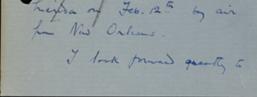 Mérida on Feb. 12th by air
from New Orleans.
I look forward greatly to